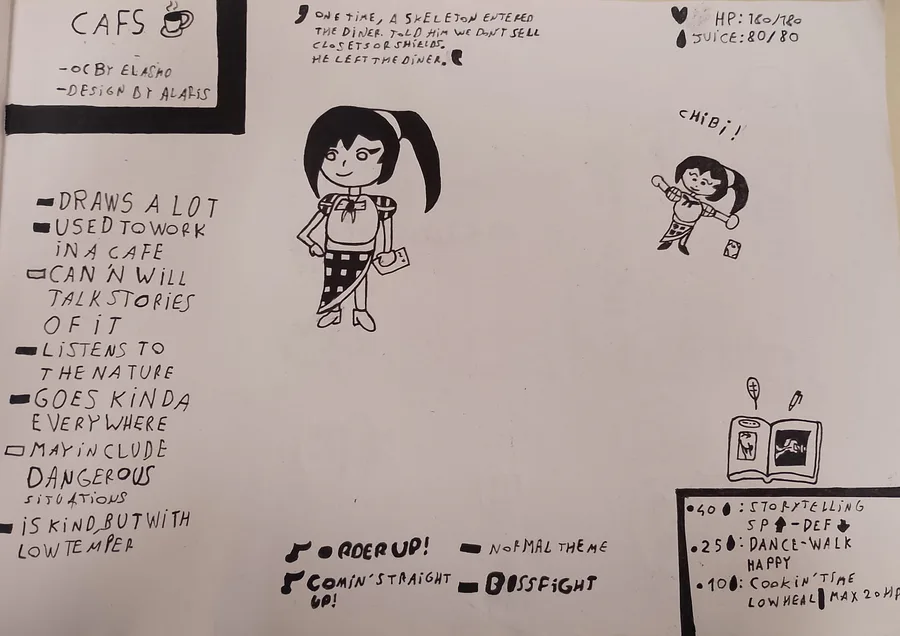 CAFS
-OC BY ELASHO
-DESIGN BY ALARIS
ONE TIME, A SKELETON ENTERED
THE DINER. TOLD HIM WE DON'T SELL
CLOSETS OR SHIELDS.
HE LEFT THE DINER.
HP: 180/180
JUICE: 80/80
CHiBi!
DRAWS A LOT
USED TO WORK
iN A CAFE
CAN 'N WiLL
TALK STORiES
OF iT
LiSTENS TO
THE NATURE
GOES KiNDA
EVERYWHERE
MAY iNCLUDE
DANGEROUS
SiTUATiONS
iS KiND, BUT WiTH
LOW TEMPER
ORDER UP!
NORMAL THEME
COMiN' STRAiGHT
UP!
BOSSFiGHT
40: STORYTELLiNG
SP - DEF
25: DANCE-WALK
HAPPY
10: COOKiN' TiME
LOW HEAL MAX 20 HP